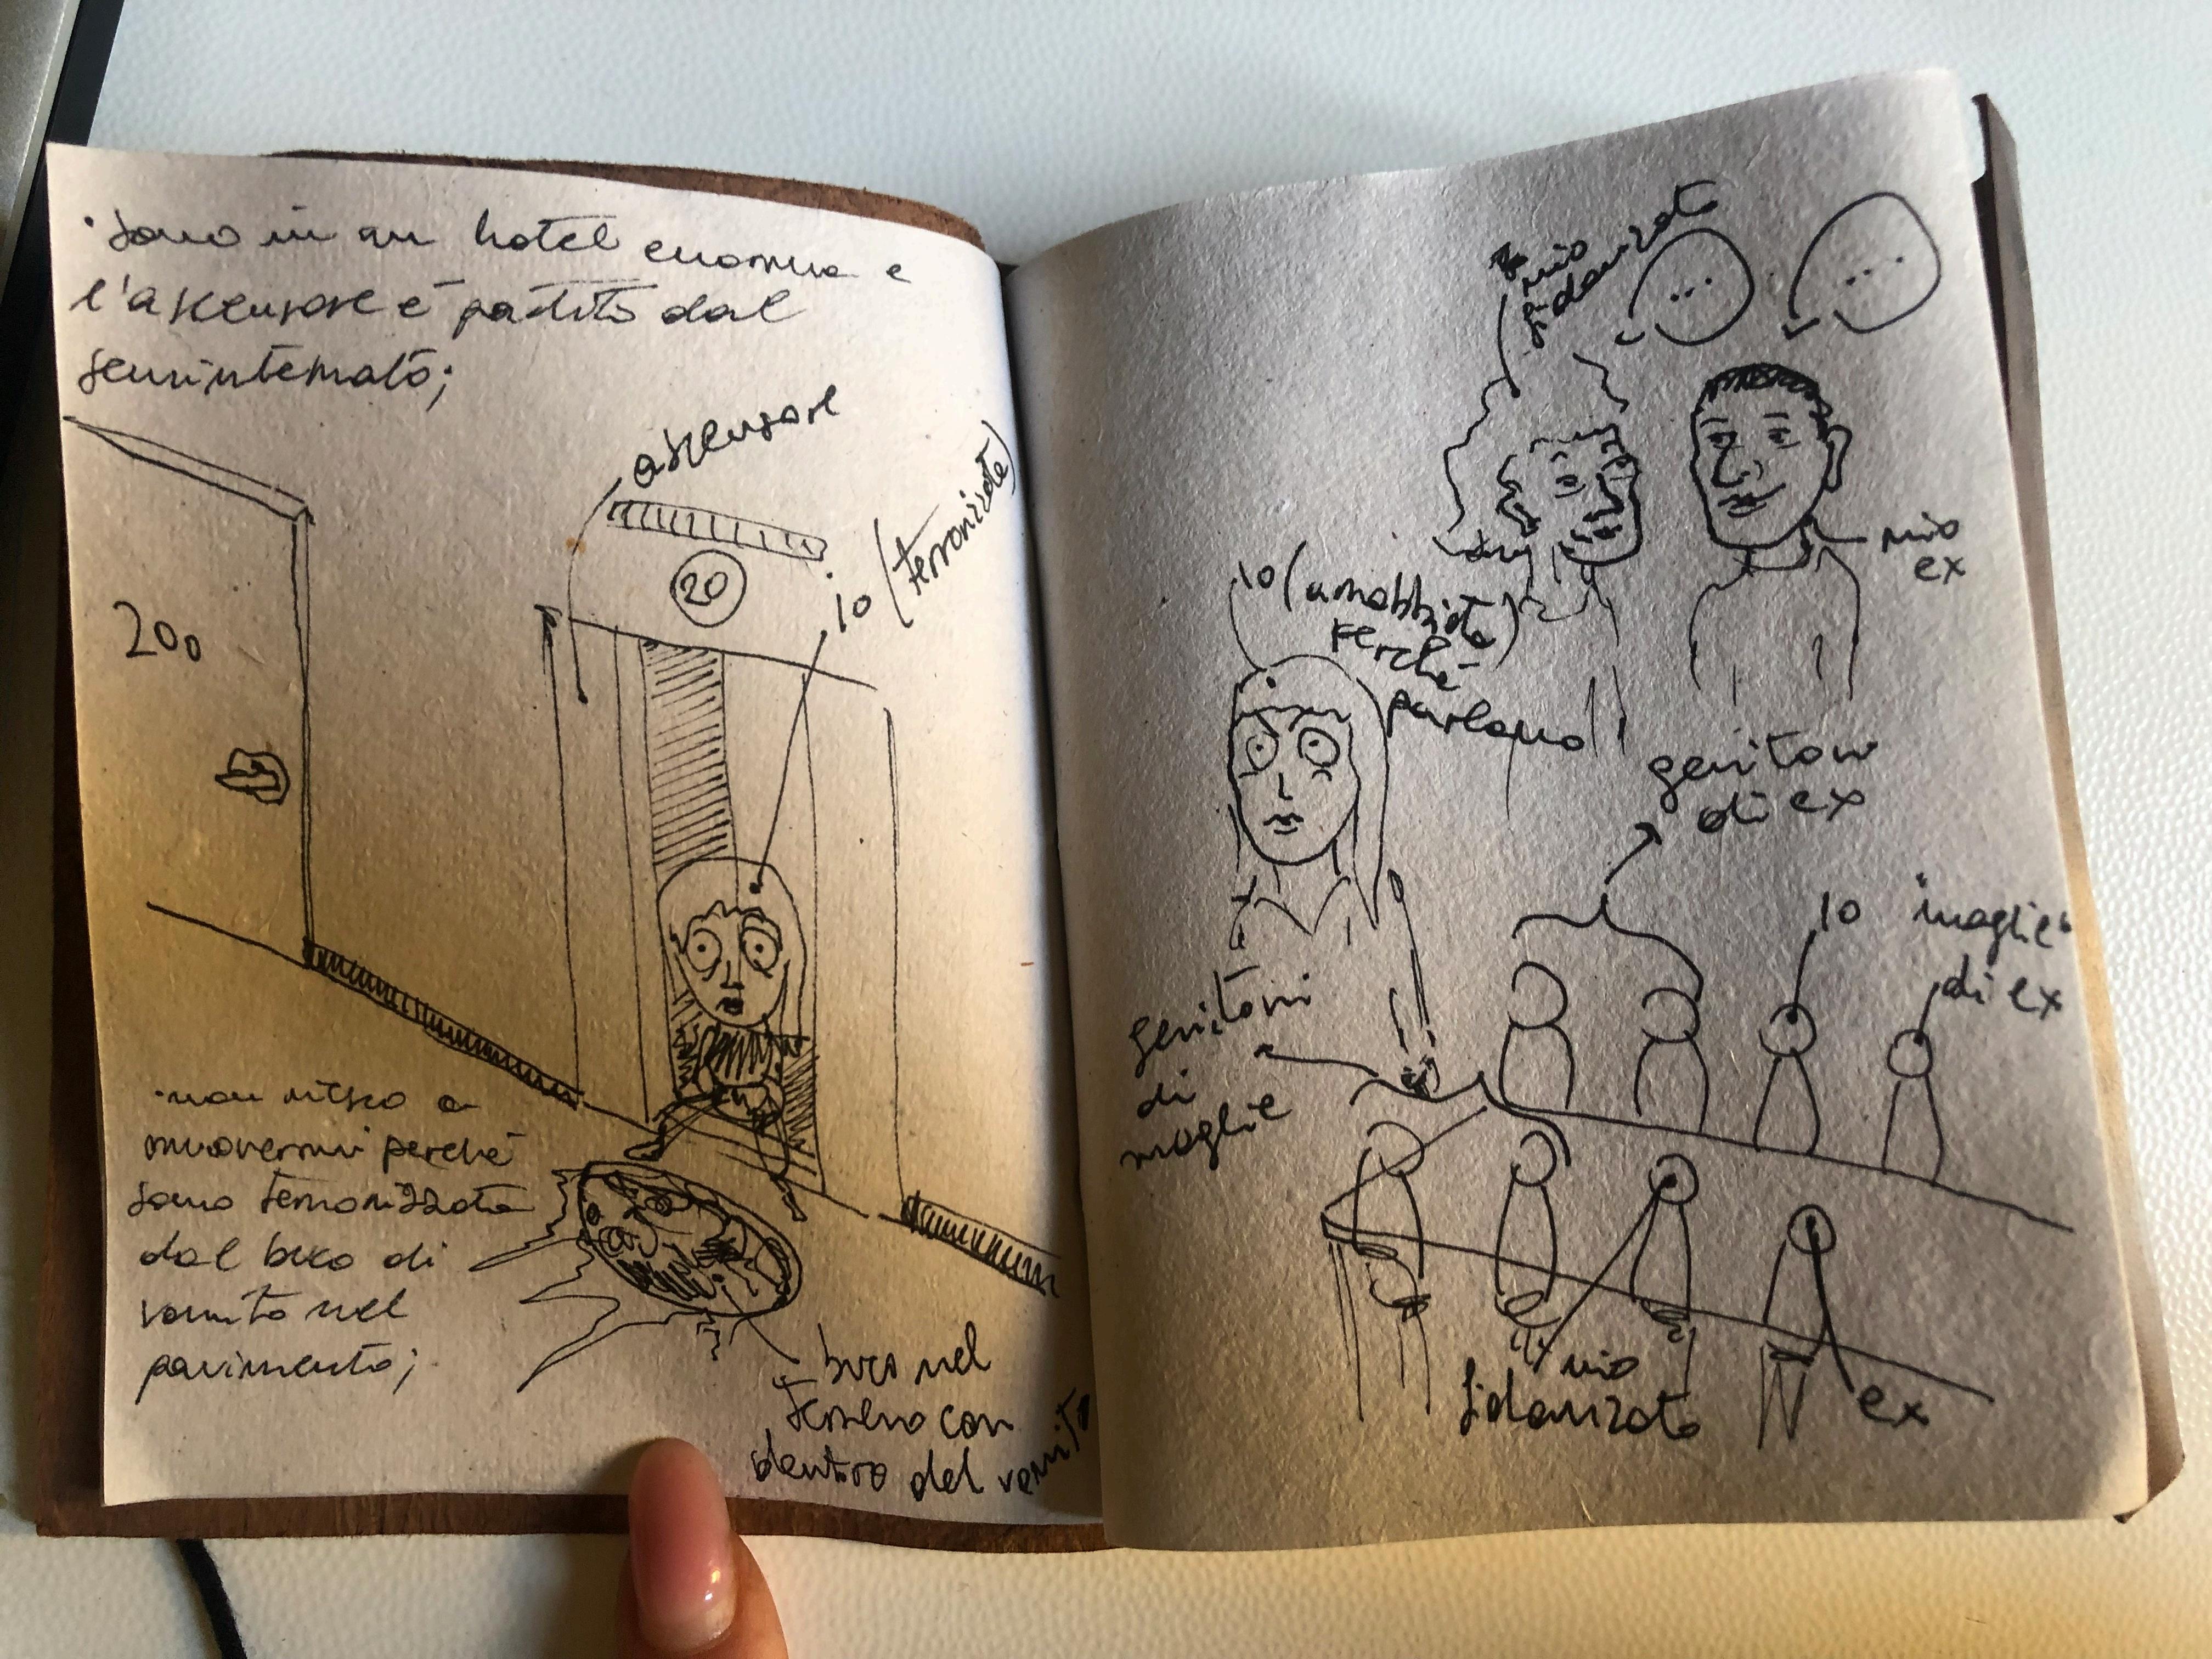 • sono in un hotel enorme e
l'ascensore è partito dal
seminterrato;
ascensore
20
io (terrorizzata)
200
• non riesco a
muovermi perché
sono terrorizzata
dal buco di
vomito nel
pavimento;
buco nel
terreno con
dentro del vomito
mio
fidanzato
...
...
mio
ex
io (arrabbiata)
perché
parlano
genitori
di ex
io "moglie"
di ex
genitori
di
moglie
mio
fidanzato
ex